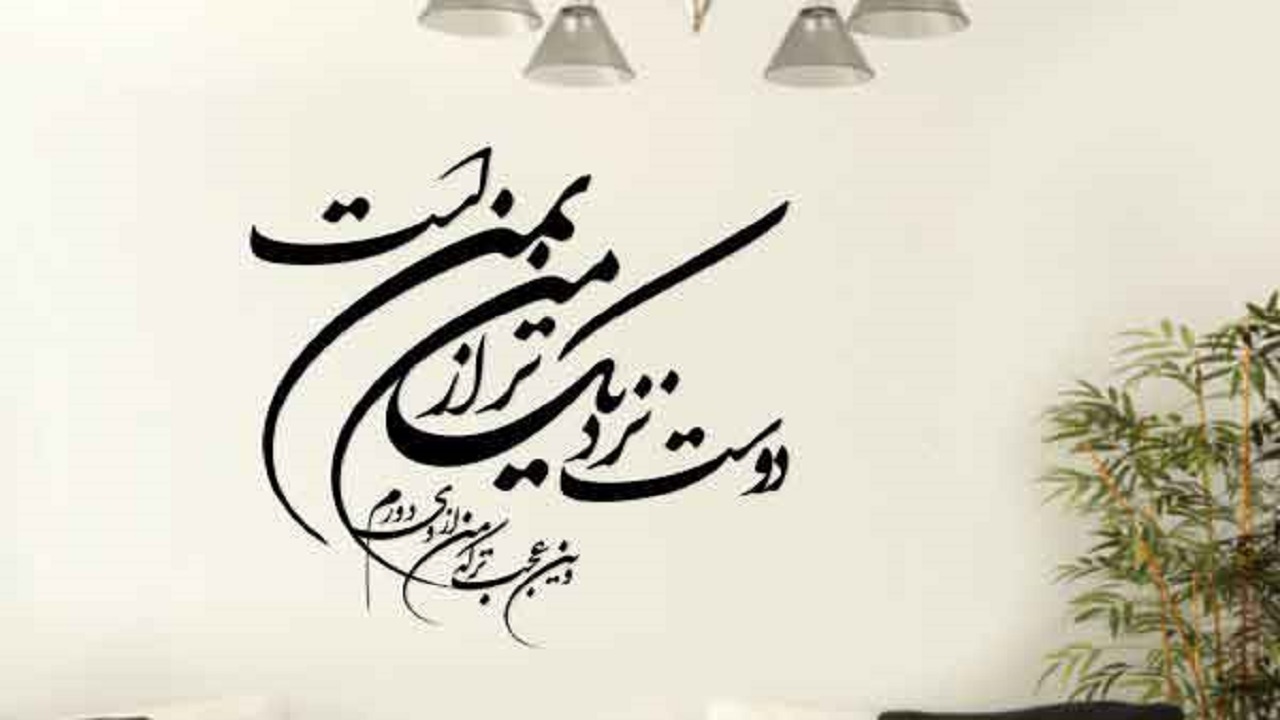 دوست نزدیک تر از من بمن است
وین عجب ترکه من از وی دورم